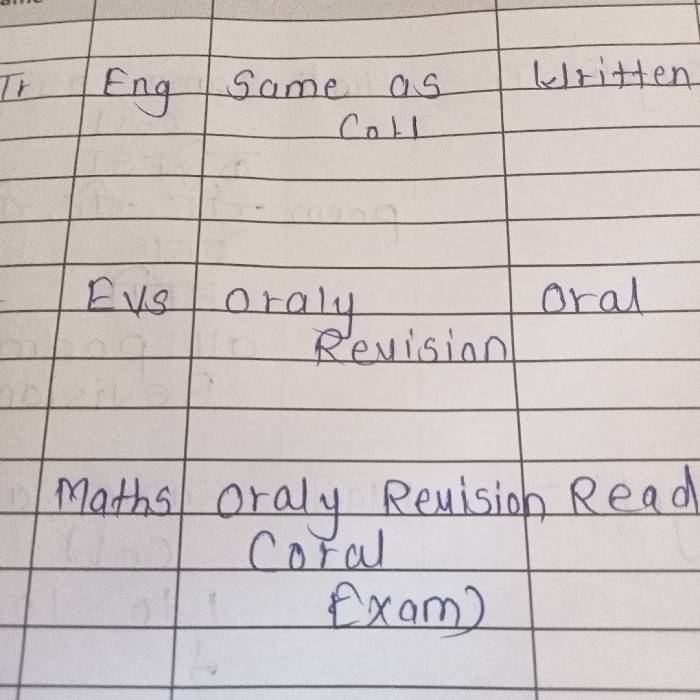 Tr Eng Same as Written
Call
EVS Oraly Oral
Revision
Maths Oraly Revision Read
(Oral
Exam)